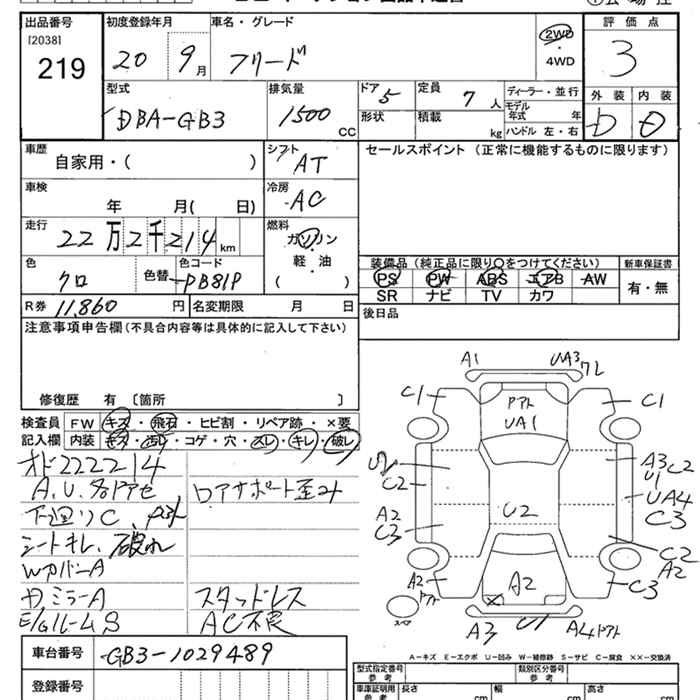 出品番号
[2038]
219
初度登録年月
20 9月
車名・グレード
フリード
2WD
・
4WD
評価点
3
型式
DBA-GB3
排気量
1500
CC
ドア
5
定員
7人
形状
積載
kg
ディーラー・並行
モデル
年式 年
ハンドル 左・右
外装
内装
D
D
車歴
自家用・( )
シフト
AT
セールスポイント (正常に機能するものに限ります)
車検
年 月( 日)
冷房
AC
走行
22万2千214km
燃料
ガソリン
・
軽・油
( )
色
クロ
色替
色コード
PB81P
装備品 (純正品に限り○をつけてください)
PS PW ABS エアB AW
SR ナビ TV カワ
新車保証書
有・無
R券 11,860円
名変期限 月 日
後日品
注意事項申告欄(不具合内容等は具体的に記入して下さい)
修復歴 有 〔箇所 〕
検査員
記入欄
FW キズ・飛石・ヒビ割・リペア跡・×要
内装 キズ・汚レ・コゲ・穴・スレ・キレ・破レ
オド222214
A.U.各ドアセ
ロアサポート歪み
下廻りC
シートキレ、破れ
WカバーA
ドミラーA
スタッドレス
E/GルームS
AC不良
車台番号 GB3-1029489
登録番号
A1
UA3
72
C1
アト
UA1
C1
U2
C2
A3 C2
U1
UA4
C3
A2
C3
U2
C2
A2
C3
A2
アト
A2
スペア
A3
U1
A4アト
A−キズ E−エクボ U−凹み W−補修跡 S−サビ C−腐食 ××−交換済
型式指定番号
参考
類別区分番号
参考
車庫証明用
参考
長さ
cm
幅
cm
高さ
cm